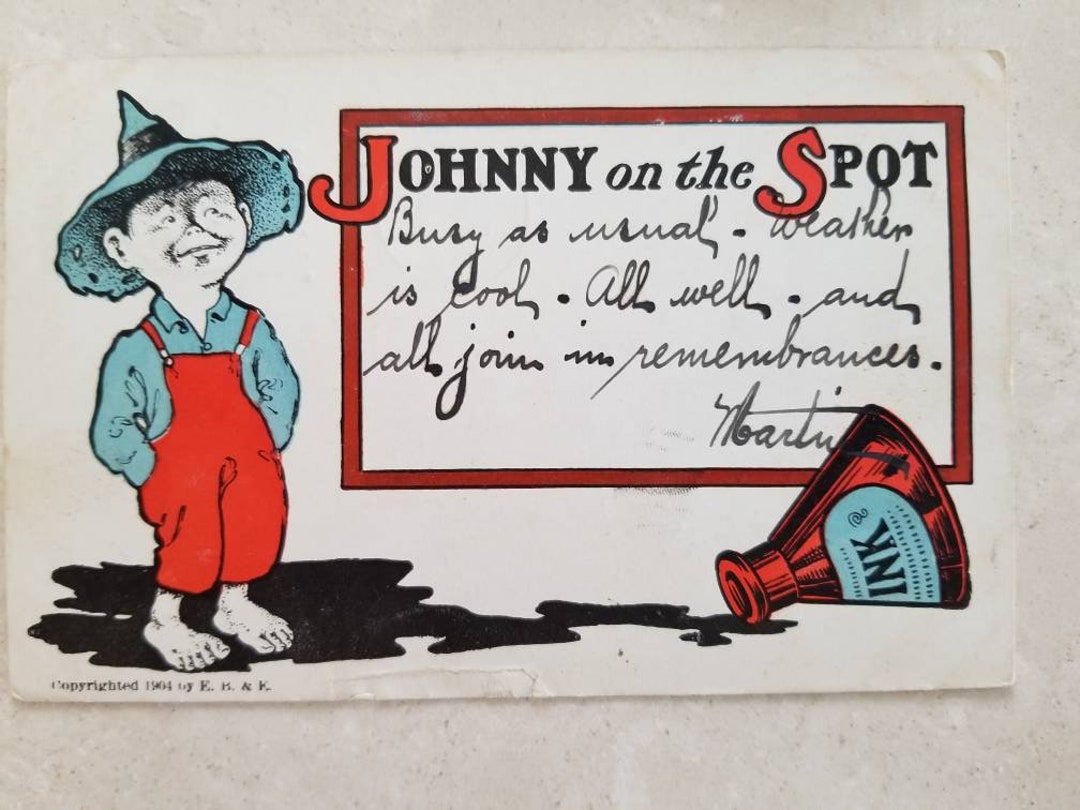 JOHNNY on the SPOT
Busy as usual. Weather
is cool. All well. and
all join in remembrances.
Martin
INK
Copyrighted 1904 by E. B. & E.